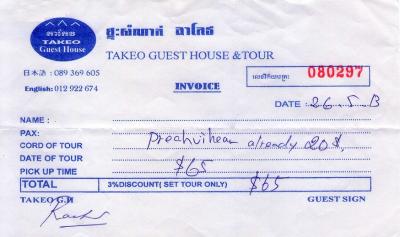 TAKEO
Guest House
ផ្ទះសំណាក់ តាកែវ
TAKEO GUEST HOUSE & TOUR
日本語 : 089 369 605
English: 012 922 674
INVOICE
080297
DATE : 26.5.13
NAME :
PAX:
CORD OF TOUR Preahvihear already 20$.
DATE OF TOUR
PICK UP TIME $65
TOTAL 3%DISCOUNT( SET TOUR ONLY) $65
TAKEO G.H GUEST SIGN